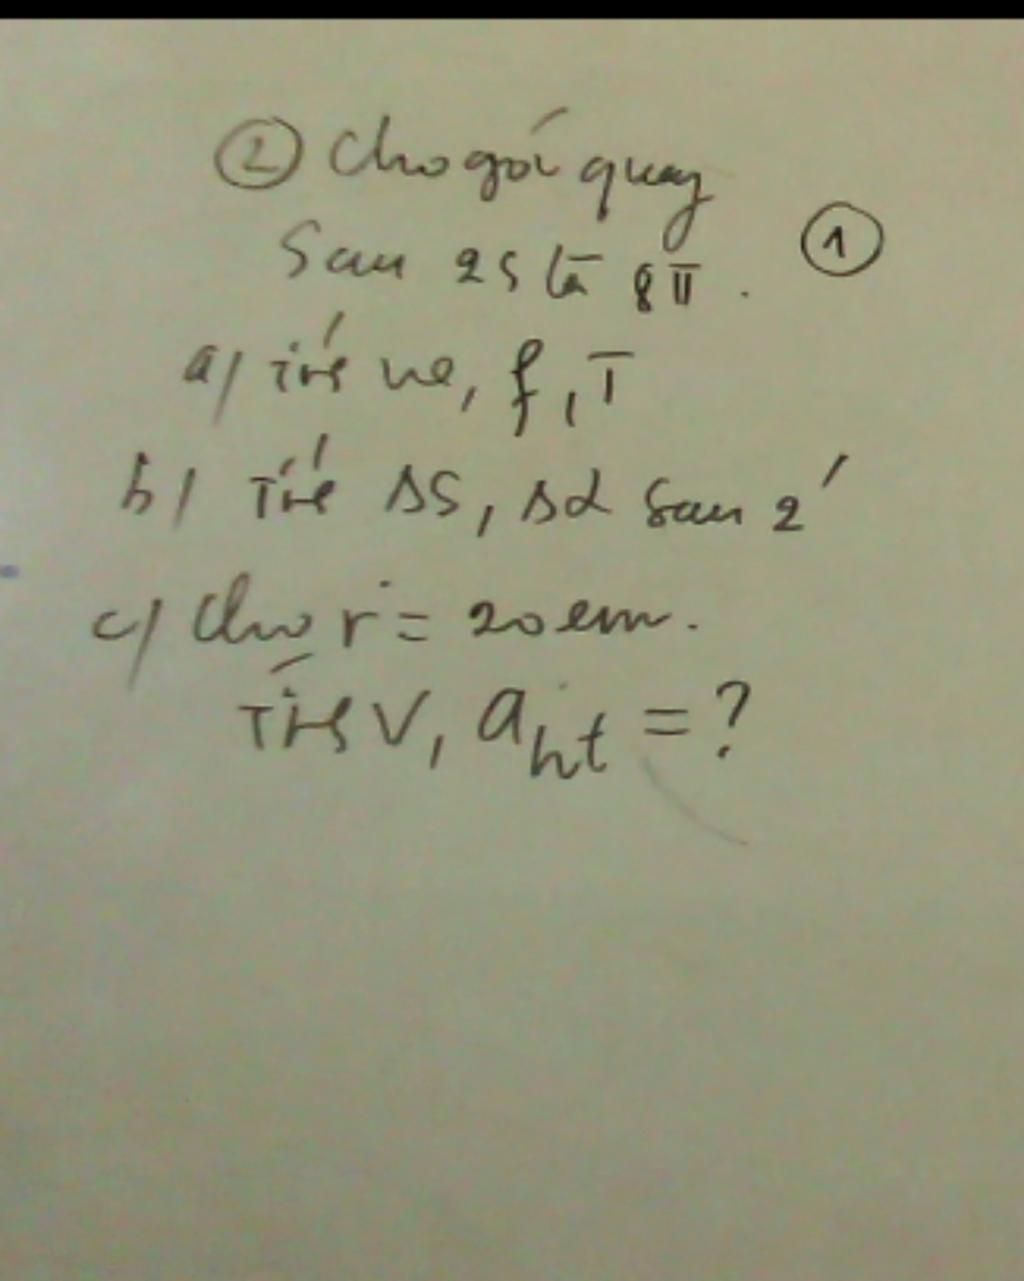 ② Cho góc quay
Sau 2s là 8π. ①
a/ Tính ω, f, T
b/ Tính ΔS, Δα sau 2'
c/ Cho r = 20cm.
Tính v, aht = ?